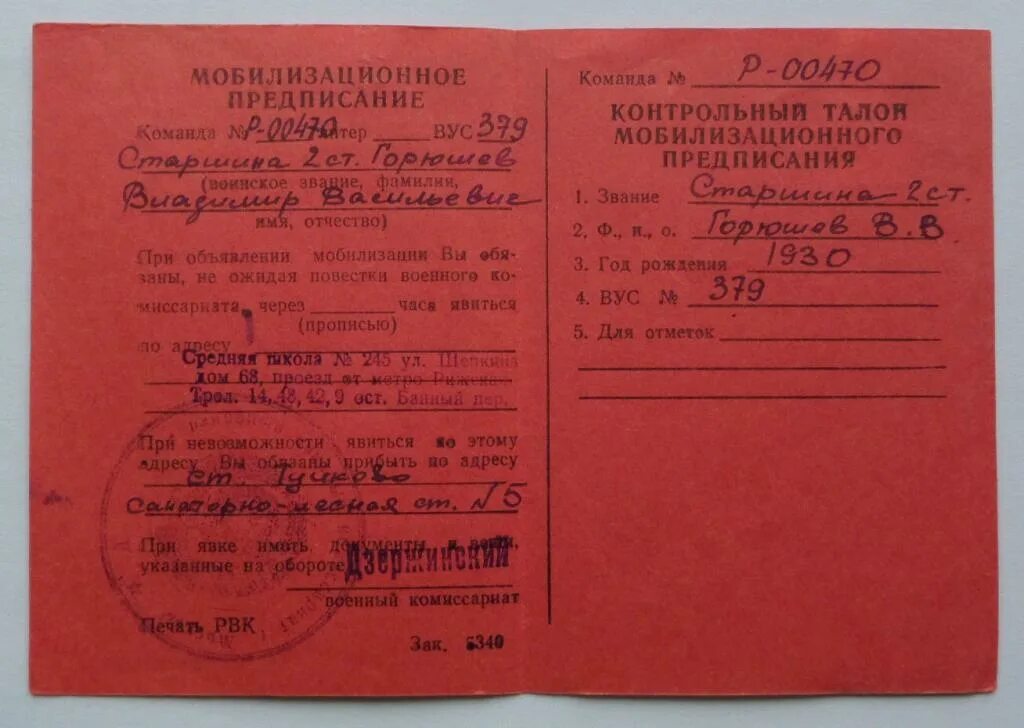 МОБИЛИЗАЦИОННОЕ
ПРЕДПИСАНИЕ
Команда № Р-00470 литер ВУС 379
Старшина 2 ст. Горюшев
(воинское звание, фамилия,
Владимир Васильевич
имя, отчество)
При объявлении мобилизации Вы обя-
заны, не ожидая повестки военного ко-
миссариата, через часа явиться
(прописью)
по адресу
Средняя школа № 245 ул. Щепкина
дом 68, проезд от метро Рижская
Трол. 14, 48, 42, 9 ост. Банный пер.
При невозможности явиться по этому
адресу Вы обязаны прибыть по адресу
ст. Тучково
Санаторно-лесная ст. № 5
При явке иметь документы и вещи,
указанные на обороте
Дзержинский
военный комиссариат
Печать РВК
Зак. 5340
Команда № Р-00470
КОНТРОЛЬНЫЙ ТАЛОН
МОБИЛИЗАЦИОННОГО
ПРЕДПИСАНИЯ
1. Звание Старшина 2 ст.
2. Ф., и., о. Горюшев В. В
3. Год рождения 1930
4. ВУС № 379
5. Для отметок